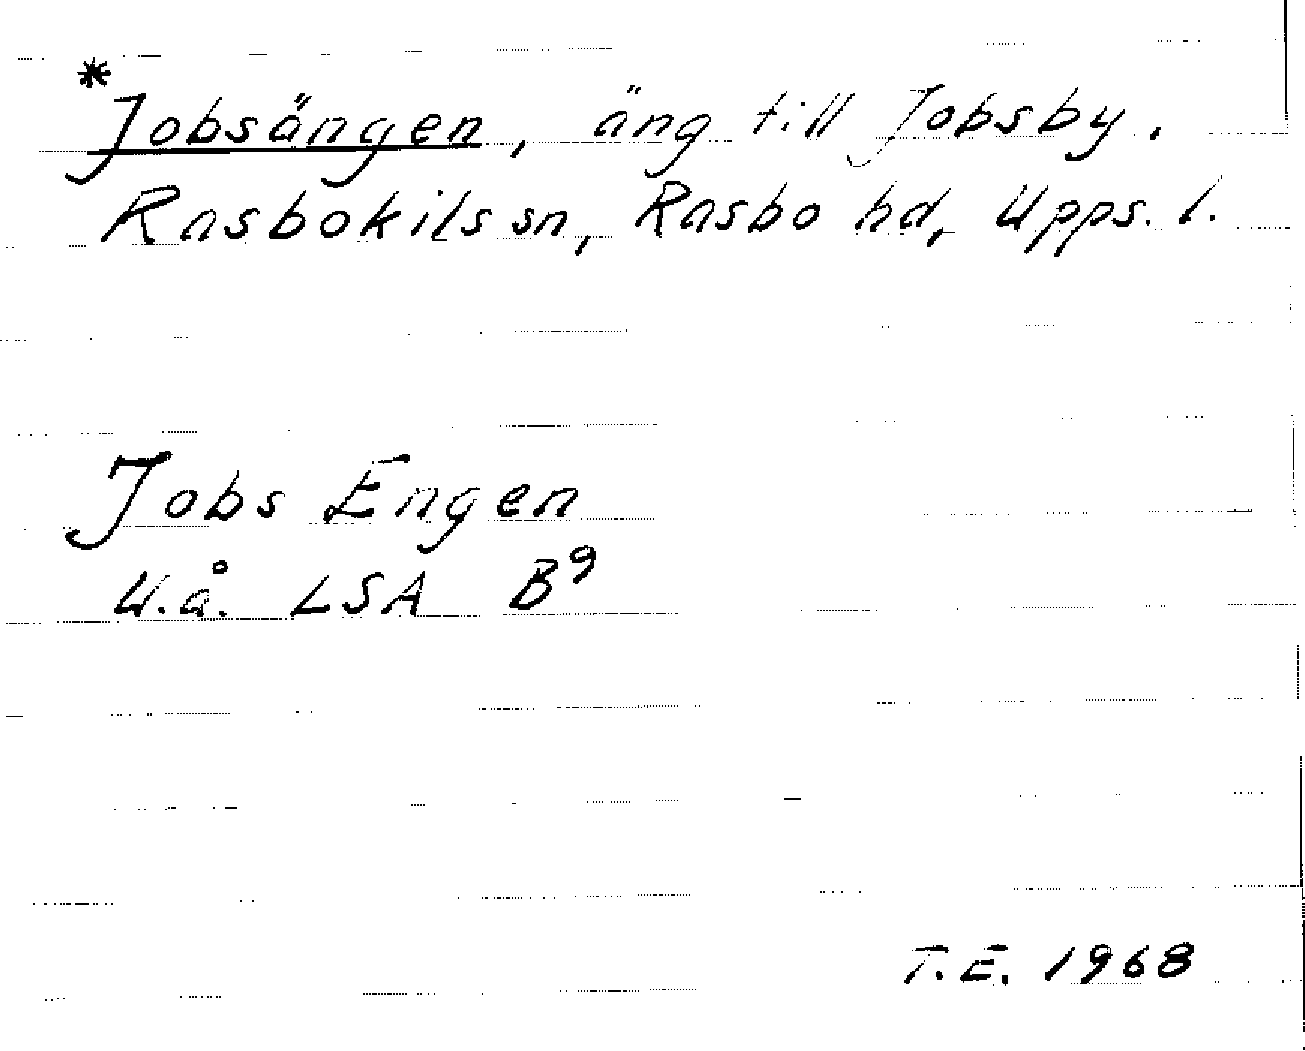 *Jobsängen, äng till Jobsby.
Rasbokils sn, Rasbo hd, Upps. l.
Jobs Engen
U.å. LSA B⁹
T.E. 1968